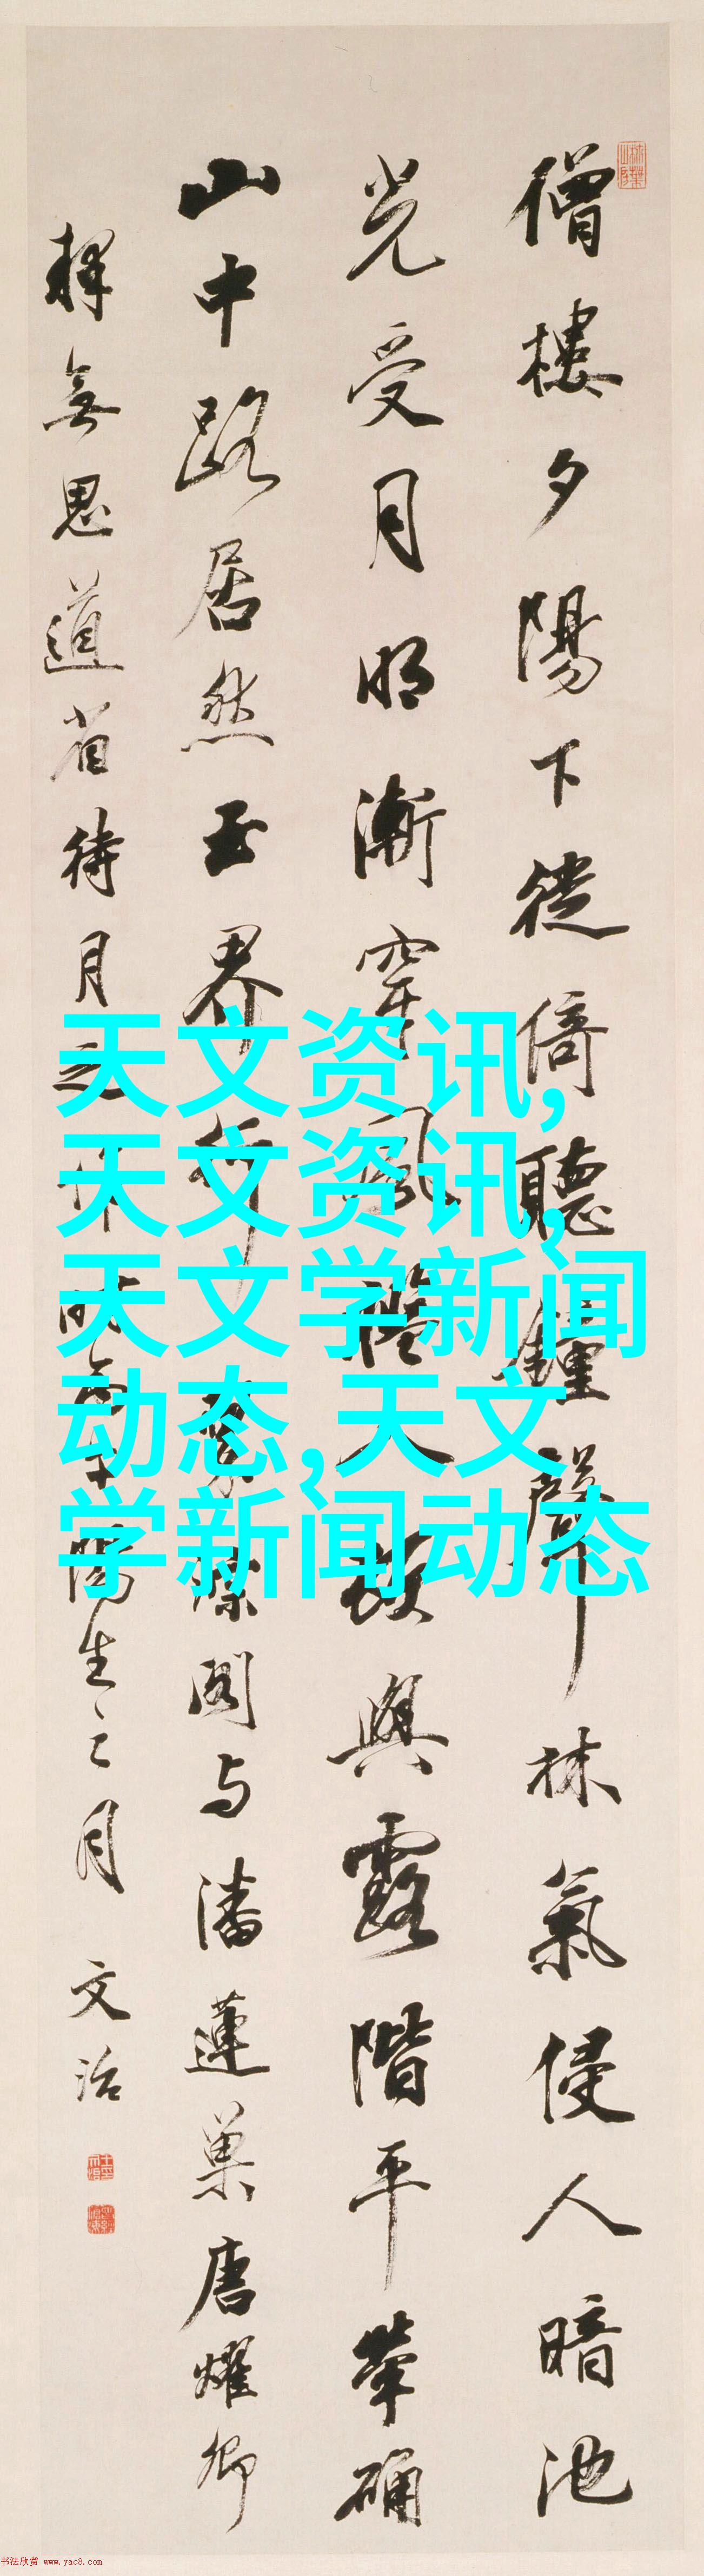 僧樓夕陽下徙倚聽鐘聲林氣侵人暗池
光受月明漸穿風櫺入故與露階平華确
山中路居然玉界行
閣与潘蓮巢唐耀卿
釋無思道省待月之作時
陽生之月 文治
天文资讯,
天文资讯,
天文学新闻
动态,天文
学新闻动态
书法欣赏 www.yac8.com